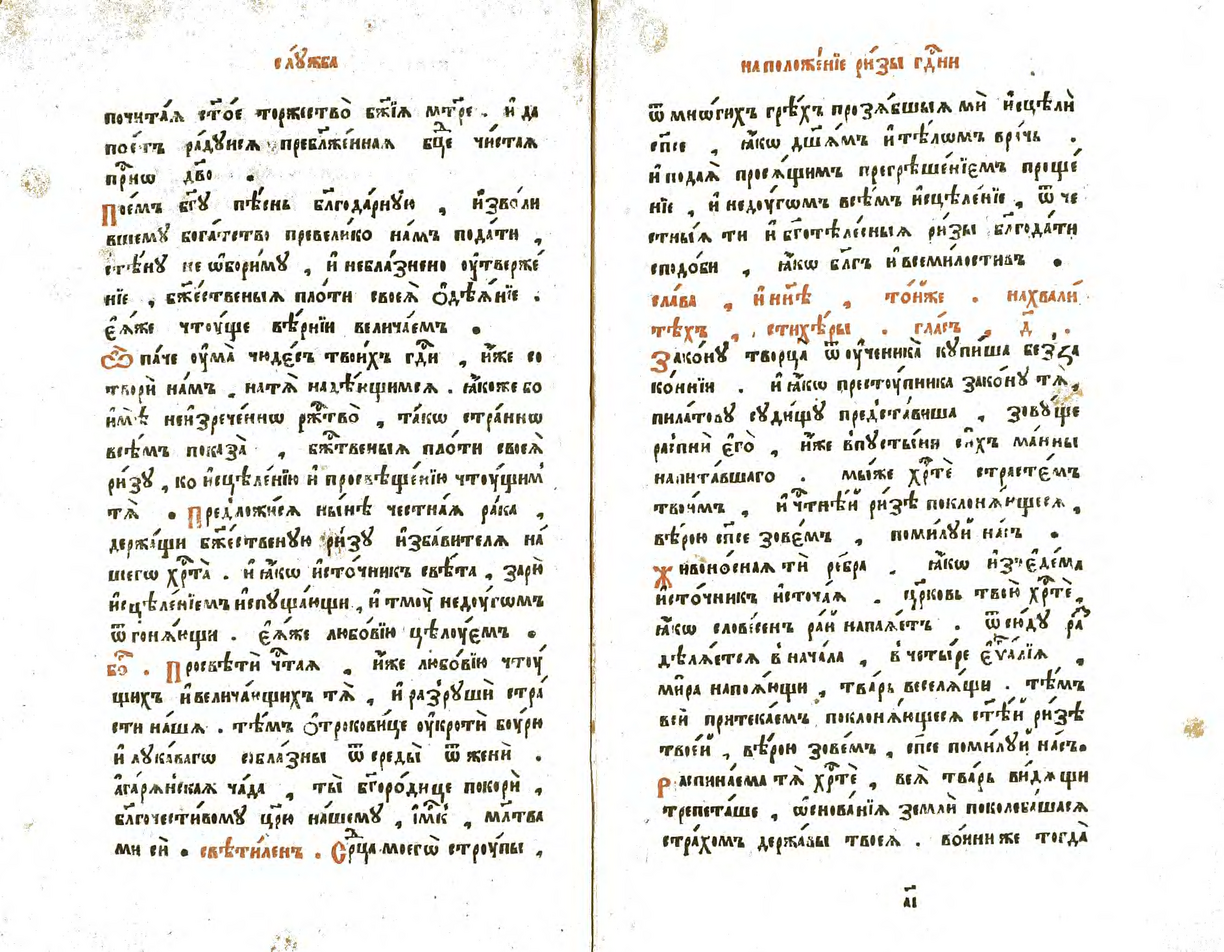 слꙋ́жба
почита́ѧ ст҃о́е торжество̀ бж҃їѧ мт҃ре . и҆ да
пое́тъ ра́дꙋисѧ преблаже́ннаѧ бц҃е чи́стаѧ
при́сѡ дв҃о .
Пое́мъ бг҃ꙋ пѣ́снь благода́рнꙋю , и҆зволи
вшемꙋ̀ бога́тство превели́ко на́мъ пода́ти ,
стѣ́нꙋ не ѡ҆бори́мꙋ , и҆ неблазнено ᲂу҆тверже́
нїе , бж҃е́ственыѧ пло́ти своеѧ̀ ѻ҆дѣѧ́нїе .
є҆ѧ́же чтꙋ́ще вѣ́рнїи велича́емъ .
Ѿ па́че ᲂу҆ма̀ чꙋде́съ твои́хъ гд҃и , и҆́же со
творѝ на́мъ , на тѧ̀ надѣ́ющимсѧ . ꙗ҆́коже бо
и҆мѣ̀ неи҆зрече́ннѡ ржтⷭ҇во̀ , та́кѡ стра́ннѡ
всѣ́мъ показа̀ , бж҃твеныѧ пло́ти своеѧ̀
ри́зꙋ , ко и҆сцѣле́нїю и҆ просвѣще́нїю чтꙋ́щим
тѧ̀ . Предложи́сѧ ны́нѣ честна́ѧ ра́ка ,
держа́щи бж҃е́ственꙋю ри́зꙋ и҆зба́вителѧ на́
шегѡ хр҃та̀ . и҆ ꙗ҆́кѡ и҆сто́чникъ свѣ́та , зарѝ
и҆сцѣле́нїемъ и҆спꙋща́ющи , и҆ тмꙋ̀ недꙋ́гѡмъ
ѿгонѧ́ющи . є҆ѧ́же любо́вїю цѣлꙋ́емъ .
бо҃ . Просвѣтѝ чт҃аѧ , и҆́же любо́вїю чтꙋ́
щихъ и҆ велича́ющихъ тѧ̀ , и҆ разрꙋшѝ стра́
сти на́шѧ . тѣ́мъ ѻ҆трокови́це ᲂу҆кротѝ бо́ꙋрю
и҆ лꙋка́вагѡ собла́зны ѿ среды̀ ѿженѝ .
а҆гарѧ́нскаѧ ча́да , ты̀ бг҃оро́дице покорѝ ,
бл҃гочести́вомꙋ цр҃ю на́шемꙋ , и҆́мк҃ , мл҃тва
ми сѝ . свѣти́ленъ . Ср҃ца моегѡ̀ стрꙋ́пы ,
на положе́нїе ри́зы гд҃ни
ѿ мнѡ́гихъ грѣ́хъ прозѧ́бшыѧ мѝ и҆сцѣлѝ
сп҃се , ꙗ҆́кѡ дш҃а́мъ и҆ тѣлѡ́мъ вра́чь .
и҆ пода́ѧ просѧ́щимъ прегрѣше́нїемъ проще́
нїе , и҆ недꙋ́гѡмъ всѣ́мъ и҆сцѣле́нїе , ѿ че
стны́ѧ ти и҆ бг҃отѣле́сныѧ ри́зы бл҃года́ти
сподо́би , ꙗ҆́кѡ бл҃гъ и҆ всеми́лостивъ .
сла́ва , и҆ нн҃ѣ , то́йже . на хвали́
тѣхъ , стихѣ́ры . гла́съ , д҃ .
Зако́нꙋ творца̀ ѿ ᲂу҆ченика̀ кꙋпи́ша безза
ко́ннїи . и҆ ꙗ҆́кѡ престꙋ́пника зако́нꙋ тѧ̀ ,
пила́товꙋ сꙋди́щꙋ предста́виша , зовꙋ́ще
распнѝ є҆го̀ , и҆́же в пꙋсты́ни си́хъ ма́нны
напита́вшаго . мы́же хр҃тѐ страсте́мъ
твои́мъ , и҆ чт҃нѣ́й ри́зѣ поклонѧ́ющесѧ ,
вѣ́рою сп҃се зове́мъ , поми́лꙋй на́съ .
Живоно́снаѧ тѝ ре́бра . ꙗ҆́кѡ и҆з̾ є҆де́ма
и҆сто́чникъ и҆сточа́ѧ . цр҃ковь твою̀ хр҃тѐ ,
ꙗ҆́кѡ слове́сенъ ра́й напаѧ́етъ . ѿсю́дꙋ ра
дѣлѧ́етсѧ в нача́ла , в четы́ре є҆ѵⷢ҇а́лїѧ ,
ми́ра напоѧ́ющи , тва́рь веселѧ́щи . тѣ́мъ
всѝ притека́емъ поклонѧ́ющесѧ ст҃ѣ́й ри́зѣ
твое́й , вѣ́рою зове́мъ , сп҃се поми́лꙋй на́съ .
Распина́ема тѧ̀ хр҃тѐ , всѧ̀ тва́рь ви́дѧщи
трепета́ше , ѡ҆снова́нїѧ землѝ поколеба́шасѧ
стра́хомъ держа́вы твоеѧ̀ . во́ини же тогда̀
аі҃